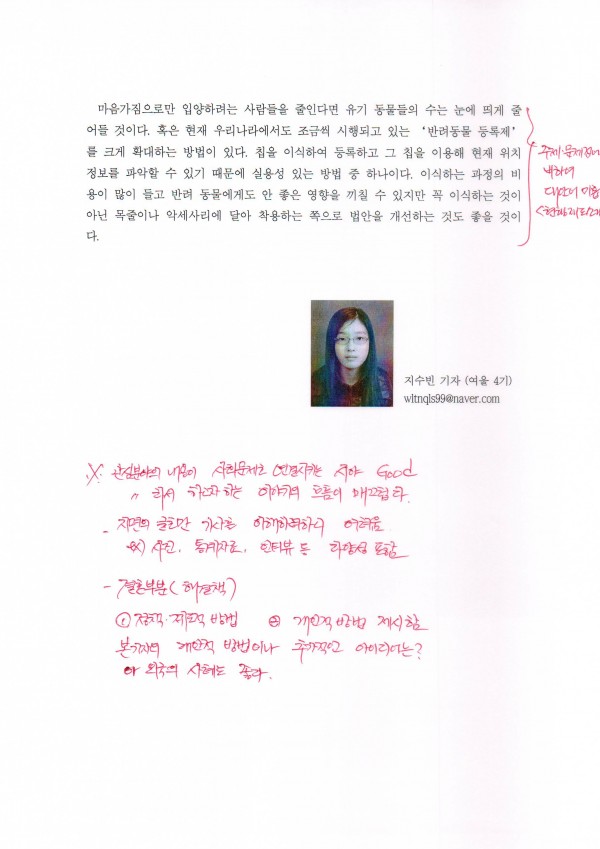 마음가짐으로만 입양하려는 사람들을 줄인다면 유기 동물들의 수는 눈에 띄게 줄
어들 것이다. 혹은 현재 우리나라에서도 조금씩 시행되고 있는 ‘반려동물 등록제’
를 크게 확대하는 방법이 있다. 칩을 이식하여 등록하고 그 칩을 이용해 현재 위치
정보를 파악할 수 있기 때문에 실용성 있는 방법 중 하나이다. 이식하는 과정의 비
용이 많이 들고 반려 동물에게도 안 좋은 영향을 끼칠 수 있지만 꼭 이식하는 것이
아닌 목줄이나 악세사리에 달아 착용하는 쪽으로 법안을 개선하는 것도 좋을 것이
다.
주제·문제
비하여
대안이
지수빈 기자 (여울 4기)
wltnqls99@naver.com
관심분야의 내용이 사회문제로 연결시키는 시야 Good
〃 라서 하고자 하는 이야기의 흐름이 매끄럽다.
- 지면의 글로만 기사를 이해하려하니 어려움
사진, 통계자료, 인터뷰 등 다양성 포함
- 결론부분 (해결책)
① 정책·제도적 방법 ② 개인적 방법 제시함
본기자의 개인적 방법이나 추가적인 아이디어는?
타 외국의 사례도 좋다.